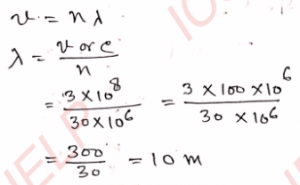 v = nλ
λ = v or c / n
= 3×10⁸ / 30×10⁶ = 3×100×10⁶ / 30×10⁶
= 300 / 30 = 10 m
HELP